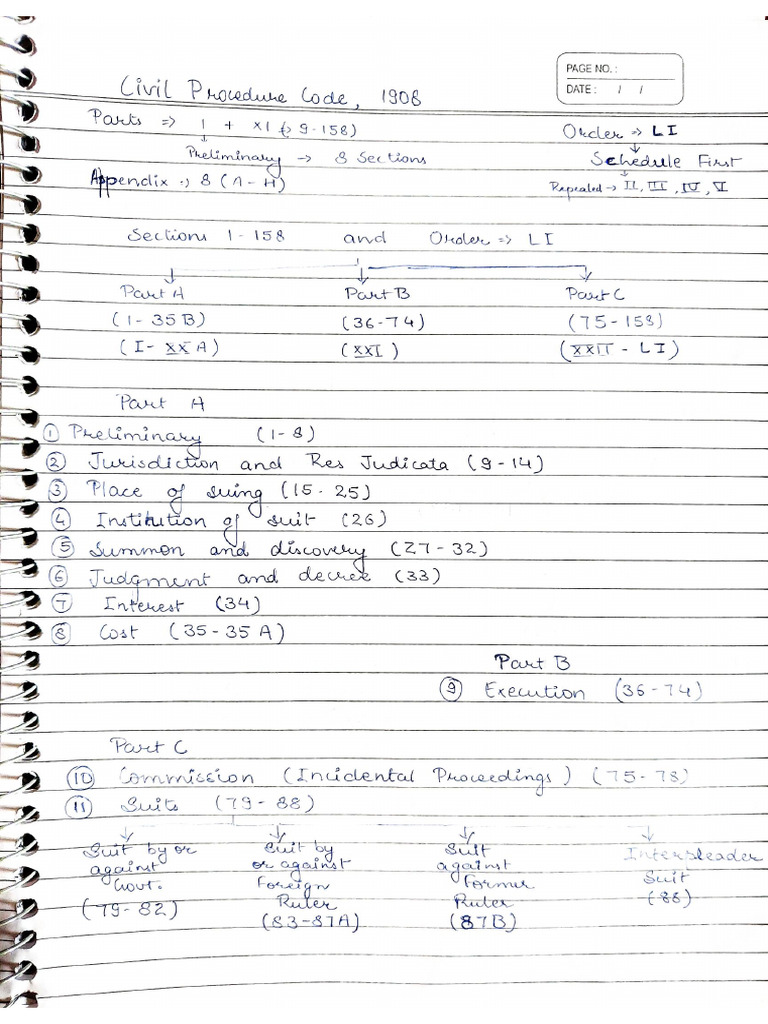 PAGE NO. :
DATE : / /
Civil Procedure Code, 1908
Parts ⇒ 1 + XI (→ 9-158)
Order ⇒ LI
↓ Preliminary → 8 Sections
Schedule First
Appendix ⇒ 8 (A-H)
Repealed → II, III, IV, V
Sections 1-158 and Order ⇒ LI
Part A Part B Part C
(1-35B) (36-74) (75-158)
(I-XXA) (XXI) (XXII-LI)
Part A
① Preliminary (1-8)
② Jurisdiction and Res Judicata (9-14)
③ Place of suing (15-25)
④ Institution of suit (26)
⑤ Summon and discovery (27-32)
⑥ Judgment and decree (33)
⑦ Interest (34)
⑧ Cost (35-35A)
Part B
⑨ Execution (36-74)
Part C
⑩ Commission (Incidental Proceedings) (75-78)
⑪ Suits (79-88)
Suit by or
against
Govt.
(79-82)
Suit by
or against
Foreign
Ruler
(83-87A)
Suit
against
Former
Ruler
(87B)
Interpleader
Suit
(88)